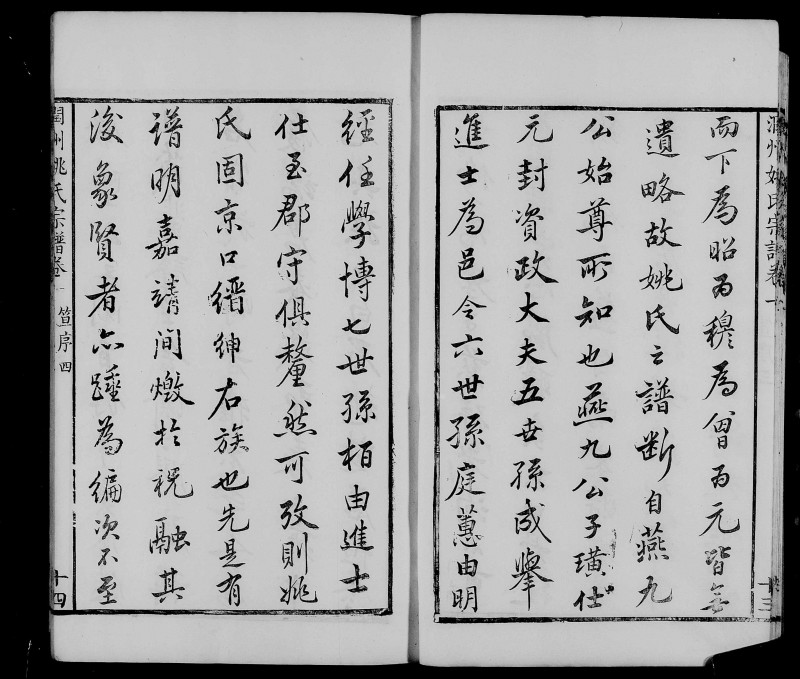 潤州姚氏宗譜卷一
十三
而下為昭為穆為曾為元皆無
遺略故姚氏之譜斷自燕九
公始尊所知也燕九公子璜仕
元封資政大夫五世孫成舉
進士為邑令六世孫庭蕙由明
經任學博七世孫栢由進士
仕至郡守俱釐然可攷則姚
氏固京口縉紳右族也先是有
譜明嘉靖间燬於祝融其
後象賢者亦踵為編次不至
潤州姚氏宗譜卷一
笪序四
十四